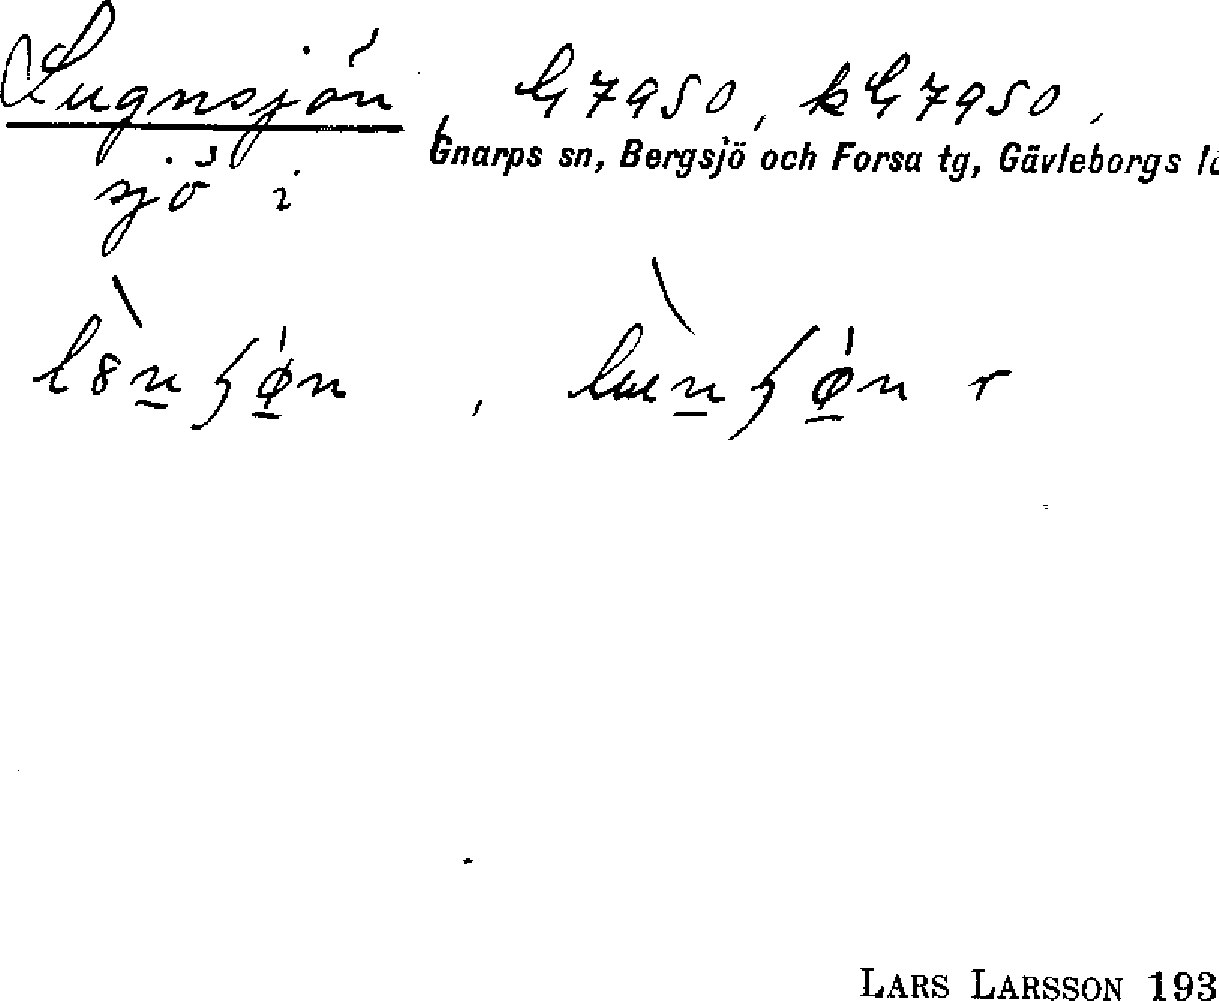 Lugnsjön, G 7950, kG 7950,
sjö i Gnarps sn, Bergsjö och Forsa tg, Gävleborgs lä
LARS LARSSON 193